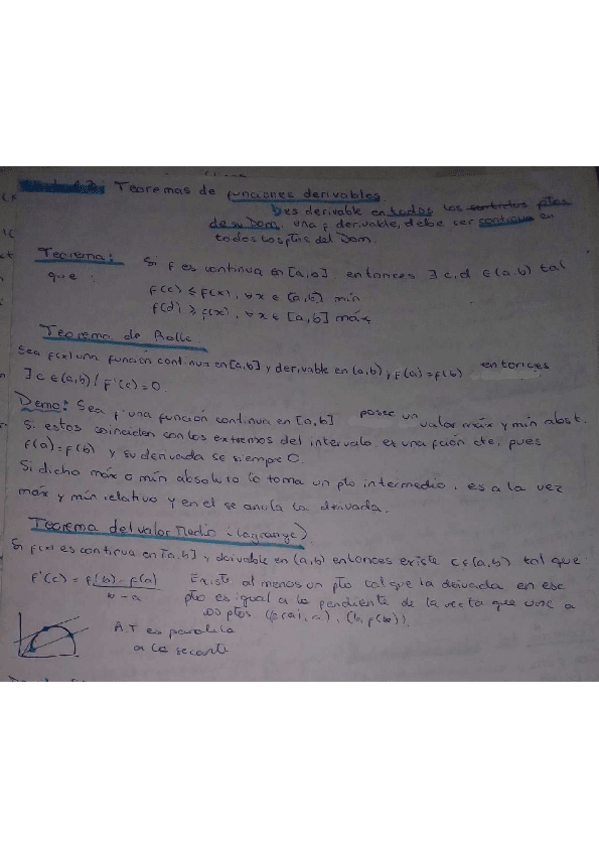 Teoremas de funciones derivables.
Des derivable en todos los ptos
de su Dom. una f derivable, debe ser continua en
todos los ptos del Dom.
Teorema: Si f es continua en [a,b]. entonces ∃ c,d ∈ (a,b) tal
que:
f(c) ≤ f(x), ∀x ∈ [a,b] mín
f(d) ≥ f(x), ∀x ∈ [a,b] máx
Teorema de Rolle
Sea f(x) una función continua en [a,b] y derivable en (a,b), f(a)=f(b) entonces
∃ c ∈ (a,b) / f'(c)=0.
Demo: Sea f una función continua en [a,b] posee un valor máx y mín abst.
Si estos coinciden con los extremos del intervalo. es una fción cte, pues
f(a)=f(b) y su derivada se siempre 0.
Si dicho máx o mín absoluto lo toma un pto intermedio. es a la vez
máx y mín relativo y en el se anula la derivada.
Teorema del valor Medio (Lagrange).
Si f(x) es continua en [a,b] y derivable en (a,b) entonces existe c ∈ (a,b) tal que:
f'(c) = f(b)-f(a) / b-a Existe al menos un pto tal que la derivada en ese
pto es igual a la pendiente de la recta que une a
los ptos (f(a), a), (b, f(b)).
R.T es paralela
a la secante